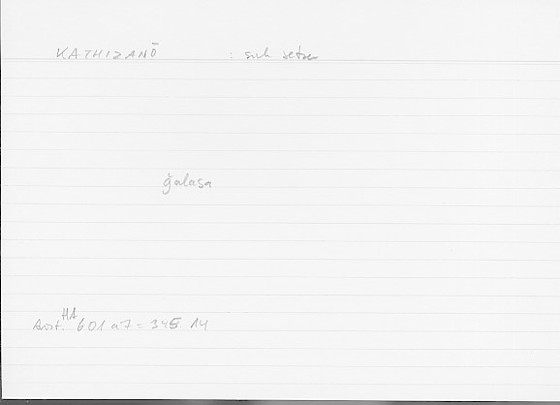 KATHIZANŌ : sich setzen
ǧalasa
Arist. HA 601 a7 = 345. 14